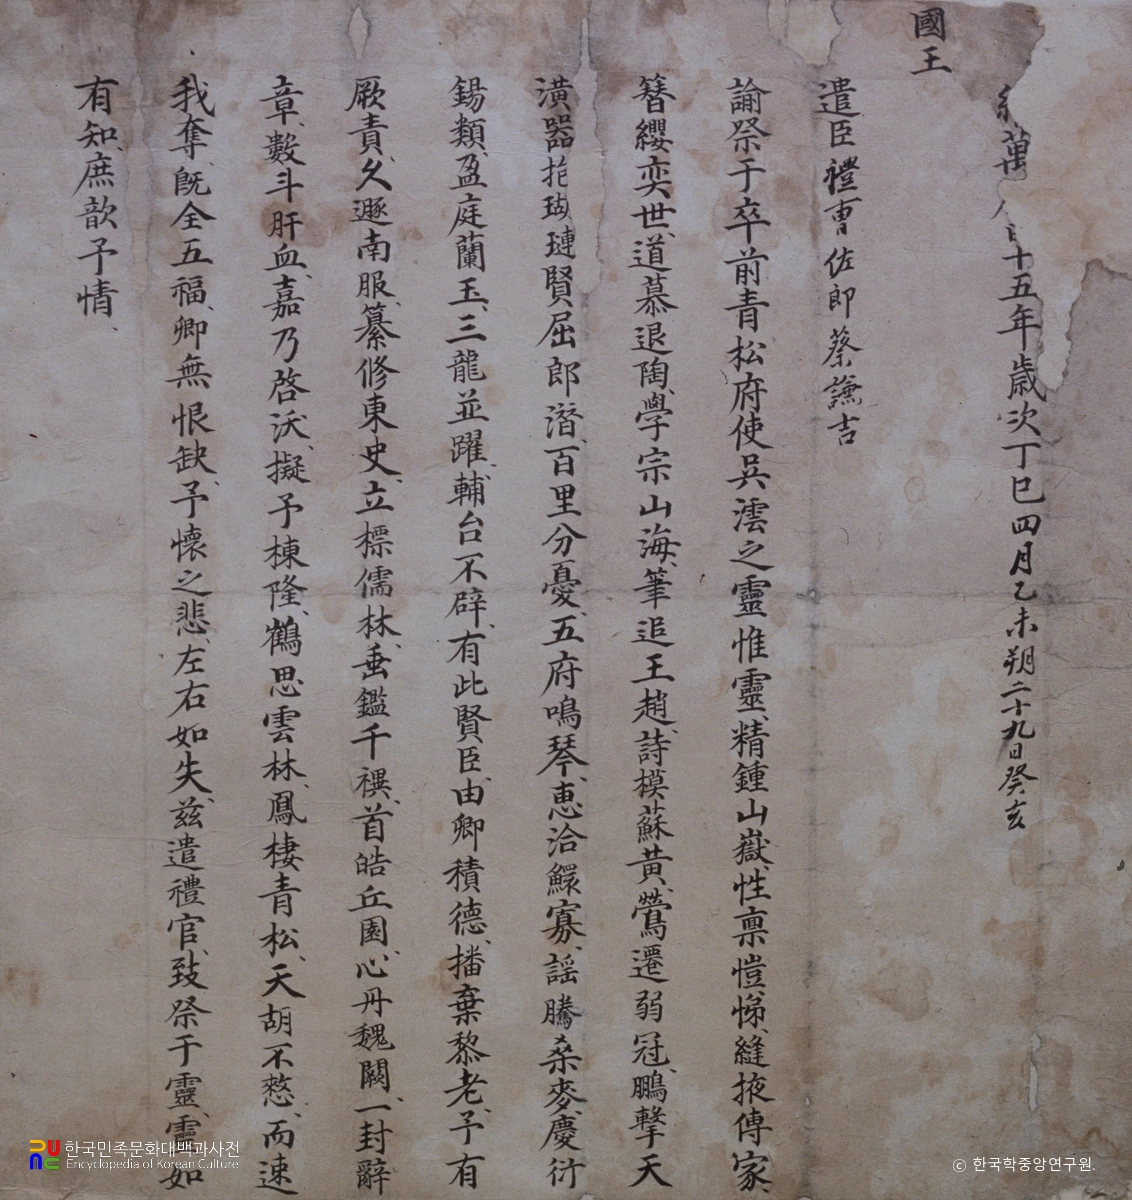 萬
十五年歲次丁巳四月乙未朔二十九日癸亥
國王
遣臣禮曹佐郎蔡謙吉
諭祭于卒前青松府使吳澐之靈惟靈精鍾山嶽性禀愷悌縫掖傳家
簪纓奕世道慕退陶學宗山海筆追王趙詩模蘇黃鶯遷弱冠鵬擊天
潢器抱瑚璉賢屈郎潛百里分憂五府鳴琴惠洽鰥寡謠騰桑麥慶衍
錫類盈庭蘭玉三龍並躍輔台不辟有此賢臣由卿積德播棄黎老予有
厥責久遯南服纂修東史立標儒林垂鑑千禩首皓丘園心丹魏闕一封辭
章數斗肝血嘉乃啓沃擬予棟隆鶴思雲林鳳棲青松天胡不憗而速
我奪旣全五福卿無恨缺予懷之悲左右如失玆遣禮官致祭于靈靈如
有知庶歆予情
한국민족문화대백과사전
Encyclopedia of Korean Culture
© 한국학중앙연구원.